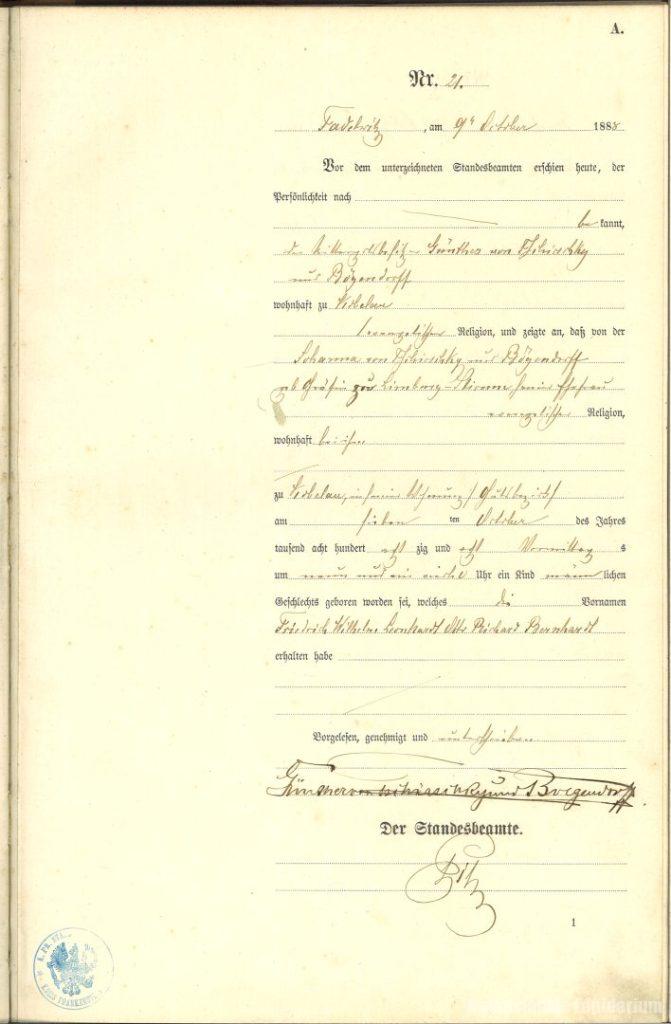 A.
Nr. 21.
, am 9ten October 1888
Vor dem unterzeichneten Standesbeamten erschien heute, der
Persönlichkeit nach
be kannt,
der Rittergutsbesitzer Günther von Tschirschky
und Bögendorff
wohnhaft zu Kobelau
evangelischer Religion, und zeigte an, daß von der
Johanna von Tschirschky und Bögendorff
geb Gräfin zu Limburg-Stirum seiner Ehefrau
evangelischer Religion,
wohnhaft bei ihm
zu Kobelau, in seiner Wohnung (Gutsbezirk)
am sieben ten October des Jahres
tausend acht hundert acht zig und acht Vormittag s
um neun und ein viertel Uhr ein Kind männ lichen
Geschlechts geboren worden sei, welches die Vornamen
Friedrich Wilhelm Leonhardt Otto Richard Bernhardt
erhalten habe
Vorgelesen, genehmigt und unterschrieben
Günther von Tschirschky und Boegendorff.
Der Standesbeamte.
1